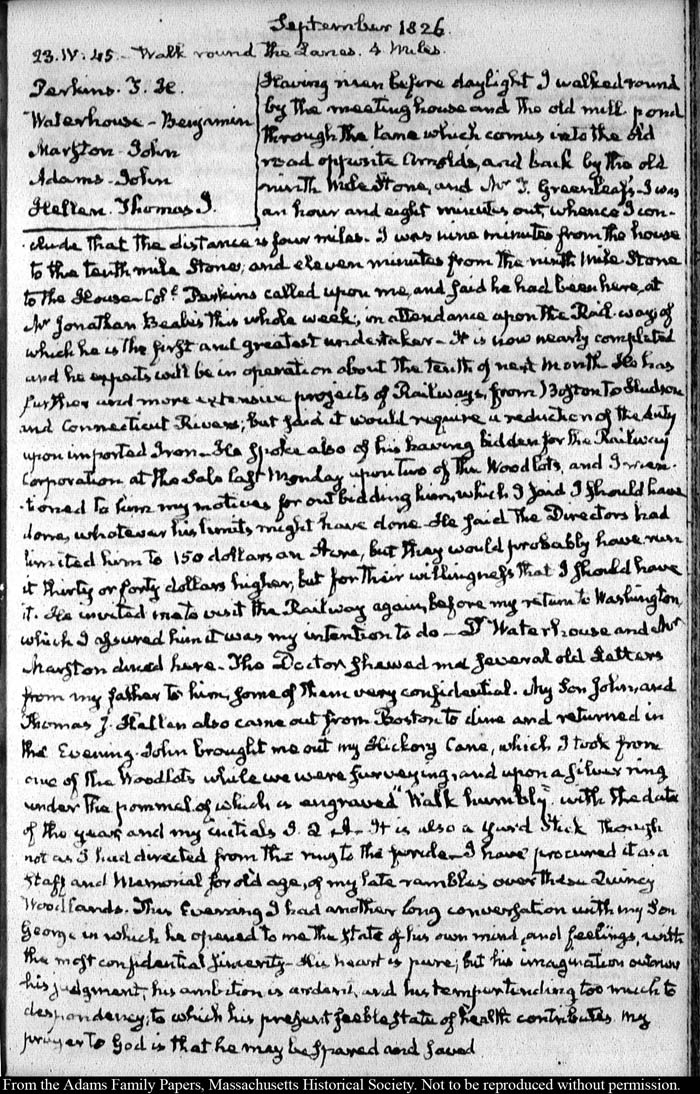 September 1826.
23. IV: 45. Walk round the Lanes. 4 Miles.
Perkins. T. H.
Waterhouse - Benjamin
Marston - John
Adams - John
Hellen. Thomas J.
Having risen before daylight I walked round
by the meeting house and the old mill pond
through the lane which comes into the old
road opposite Arnolds, and back by the old
ninth Mile Stone, and Mr T. Greenleaf's. I was
an hour and eight minutes out, whence I con-
clude that the distance is four miles. I was nine minutes from the house
to the tenth mile Stone, and eleven minutes from the ninth Mile Stone
to the House. Coll. Perkins called upon me, and said he had been here, at
Mr Jonathan Beale's this whole week, in attendance upon the Rail-way of
which he is the first and greatest undertaker - It is now nearly completed
and he expects will be in operation about the tenth of next Month. He has
further and more extensive projects of Railways, from Boston to Hudson
and Connecticut Rivers; but said it would require a reduction of the duty
upon imported Iron - He spoke also of his having bidden for the Railway
Corporation at the Sale last Monday, upon two of the Woodlots, and I men-
-tioned to him my motives for outbidding him, which I said I should have
done, whatever his limits might have done - He said the Directors had
limited him to 150 dollars an Acre, but they would probably have run
it thirty or forty dollars higher, but for their willingness that I should have
it. He invited me to visit the Railway again, before my return to Washington,
which I assured him it was my intention to do - Dr Waterhouse and Mr
Marston dined here - The Doctor shewed me several old Letters
from my father to him, some of them very confidential. My Son John, and
Thomas J. Hellen also came out from Boston to dine and returned in
the Evening. John brought me out my Hickory Cane, which I took from
one of the Woodlots while we were surveying, and upon a silver ring
under the pommel of which is engraved "Walk humbly" with the date
of the year, and my initials J. Q. A - It is also a yard Stick though
not as I had directed from the ring to the - I have procured it as a
Staff and Memorial for old age, of my late rambles over these Quincy
Woodlands. This Evening I had another long conversation with my Son
George in which he opened to me the state of his own mind, and feelings, with
the most confidential sincerity - His heart is pure; but his imagination outruns
his judgment, his ambition is ardent, and his temper tending too much to
despondency; to which his present feeble state of health contributes. My
prayer to God is that he may be spared and saved
From the Adams Family Papers, Massachusetts Historical Society. Not to be reproduced without permission.